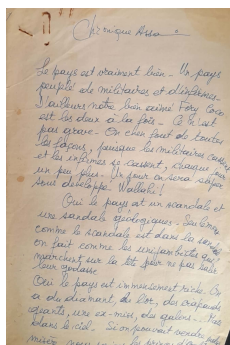 Chronique Assa
Le pays est vraiment bien - Un pays
peuplé de militaires et d'infirmes.
D'ailleurs notre bien aimé Fory Coco
est les deux à la fois. Ce n'est
pas grave. On s'en fout de toutes
les façons, puisque les militaires cassent
et les infirmes se cassent, chaque jour
un peu plus. Un jour on sera
sous développé Wallahi!
Oui le pays est un scandale et
une sandale géologiques.
comme le scandale est dans la sandale
on fait comme les unijambistes qui
marchent sur la tête pour ne pas salir
leur godasse
Oui le pays est immensément riche. On
a du diamant, de l'or, des crapauds
géants, une ex-miss, des galons... Mais
dans le ciel. Si on pouvait vendre
misère